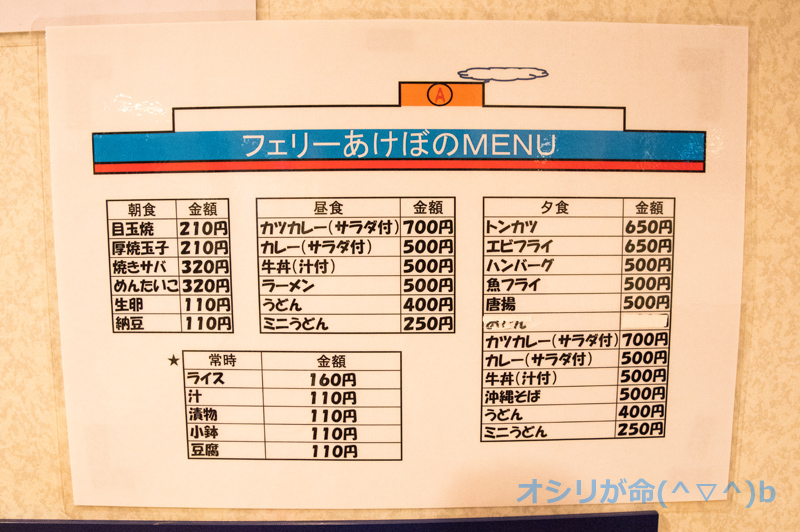 A
フェリーあけぼのMENU
朝食 金額
目玉焼 210円
厚焼玉子 210円
焼きサバ 320円
めんたいこ 320円
生卵 110円
納豆 110円
昼食 金額
カツカレー(サラダ付) 700円
カレー(サラダ付) 500円
牛丼(汁付) 500円
ラーメン 500円
うどん 400円
ミニうどん 250円
夕食 金額
トンカツ 650円
エビフライ 650円
ハンバーグ 500円
魚フライ 500円
唐揚 500円
カツカレー(サラダ付) 700円
カレー(サラダ付) 500円
牛丼(汁付) 500円
沖縄そば 500円
うどん 400円
ミニうどん 250円
★ 常時 金額
ライス 160円
汁 110円
漬物 110円
小鉢 110円
豆腐 110円
オシリが命(^▽^)b